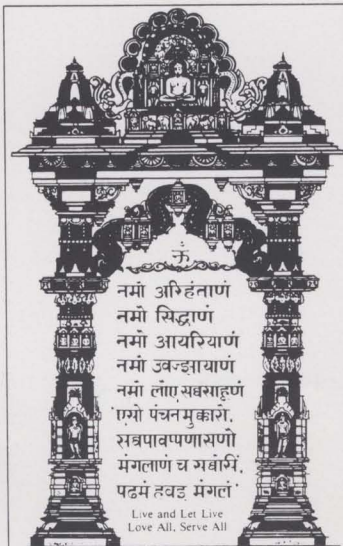 ॐ
नमो अरिहंताणं
नमो सिद्धाणं
नमो आयरियाणं
नमो उवज्झायाणं
नमो लोए सव्वसाहूणं
एसो पंचनमुक्कारो,
सव्वपावप्पणासणो
मंगलाणं च सव्वेसिं,
पढमं हवइ मंगलं
Live and Let Live
Love All, Serve All